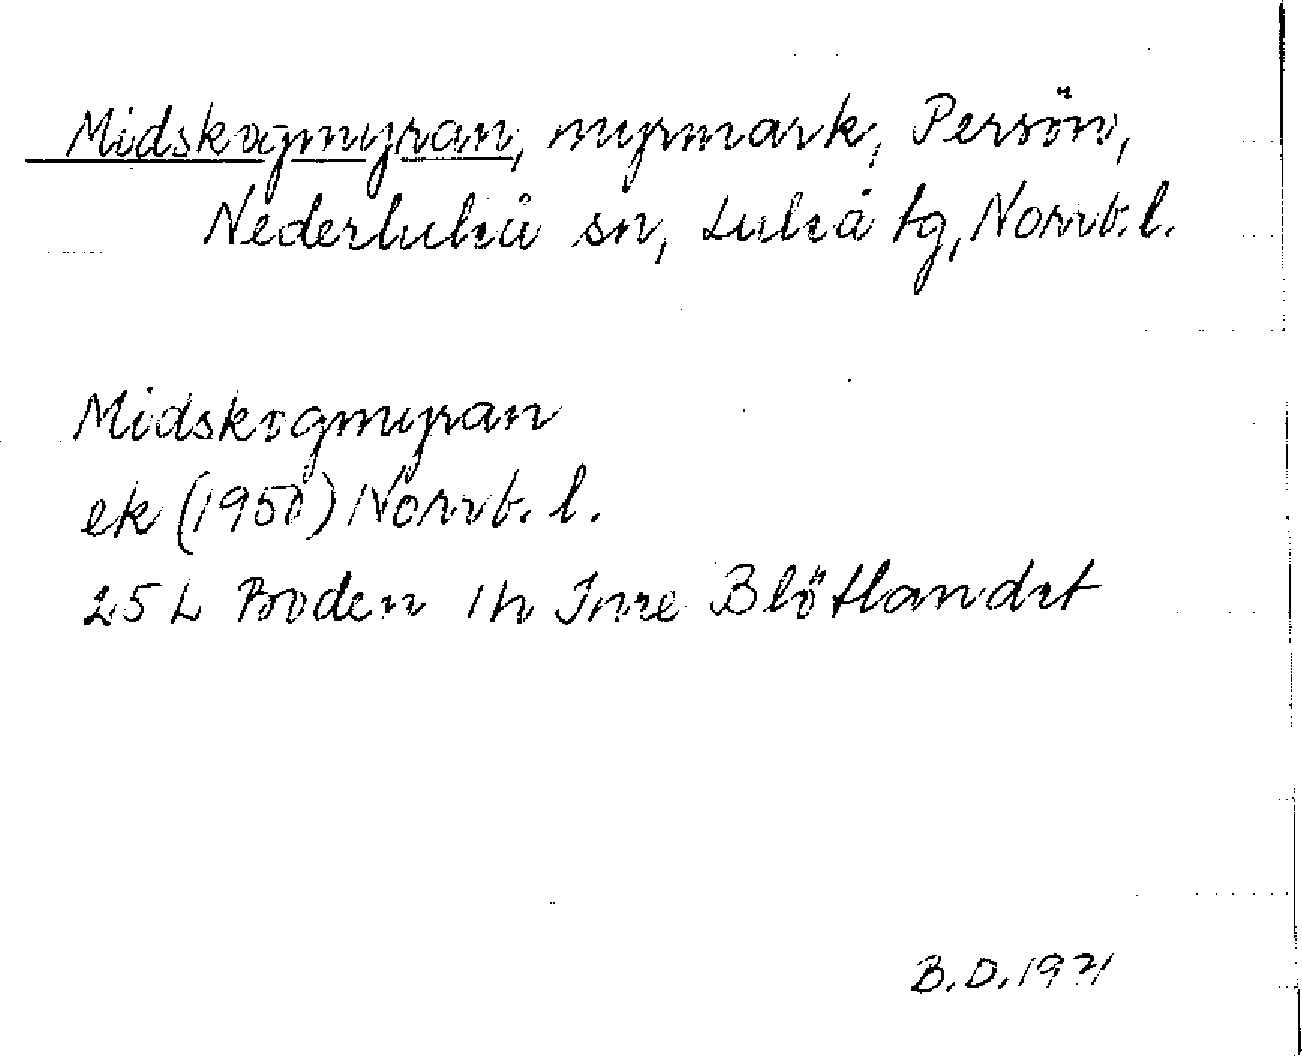 Midskogmyran, myrmark, Persön,
Nederluleå sn, Luleå tg, Norrb. l.
Midskogmyran
ek (1950) Norrb. l.
25 L Boden 1 h Inre Blötlandet
B.D. 1971